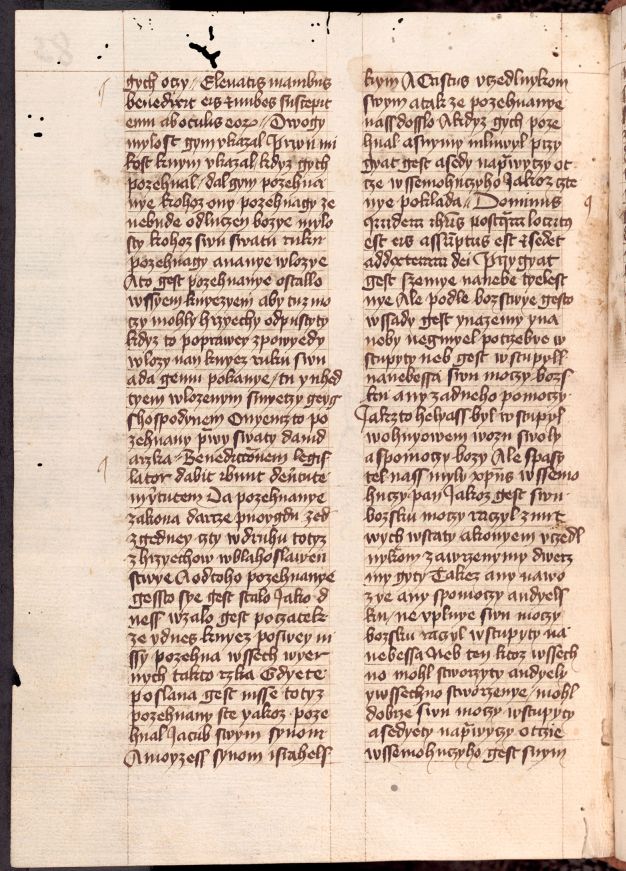 gych oczy Eleuatis manibus
benedixit eis et nubes suscepit
eum ab oculis eorum Dwogy
mylost gym vkazal Prwu mi
lost knym vkazal kdyz gych
pozehnal dal gym pozehna
nye krohoz ony pozehnagy ze
nebude odluczen bozye mylo
sty kohoz swu swatu ruku
pozehnagy a nanye wlozye
A to gest pozehnanye ostallo
wssyem knyezyem aby tuz mo
czy mohly hrzyechy odpustyty
kdyz to poprawey zpowyedy
wlozy nan knyez ruku swu
a da gemu pokanye tu yhned
tyem wlozenym smyerzy geyg
s hospodynem O nyemz to po
zehnany prwy swaty dauid
a rzka Benedictionem legis
lator dabit ibunt de virtute
in virtutem Da pozehnanye
zakona darze pu ogdu zed
z gedney czty w druhu totyz
z hrzyechow w blahoslauen
stwye A od toho pozehnanye
gessto sye gest stalo Jako d
ness wzalo gest poczatek
ze y dnes knyez poswey m
ssy pozehna wssech wyer
nych takto rzka Gdyete
poslana gest msse totyz
pozehnany ste yakoz poze
hnal Jacub swym synom
A moyzess synom israhels
kym A Cristus vczedlnykom
swym a tak ze pozehnanye
nass dosslo A kdyz gych poze
hnal a s nymy mluwyl przy
gyat gest a sedy na prawyczy ot
cze wssemohuczyho Jakoz czte
nye poklada Dominus
quidem ihesus postquam locutus
est eis assumptus est et sedet
ad dextram dei Przygyat
gest szemye na nebe tyelest
nye Ale podle bozstwye gesto
wssady gest y na zemy y na
noby negmyel potrzebye w
stupyty neb gest wstupyll
na nebessa swu moczy bozs
ku any zadneho pomoczy
Jakzto helyass byl wstupyl
wohnyowem wozu swoly
a spomoczy bozy Ale spass
tel nass myly xpus wssemo
huczy pan Jakoz gest swu
bozsku moczy raczyl z mrt
wych wstaty a konyem vczedl
nykom zawrzenymy dwerz
my gyty Takez any na wo
zye any s pomoczy andyels
ku ne vplnye swu moczy
bozsku raczyl wstupyty na
nebessa Neb ten ktoz wssech
no mohl stworzyty andyely
y wssechno stworzenye mohl
dobrze swu moczy wstupyty
a sedyety na prawyczy otczie
wssemohuczyho gest s nym